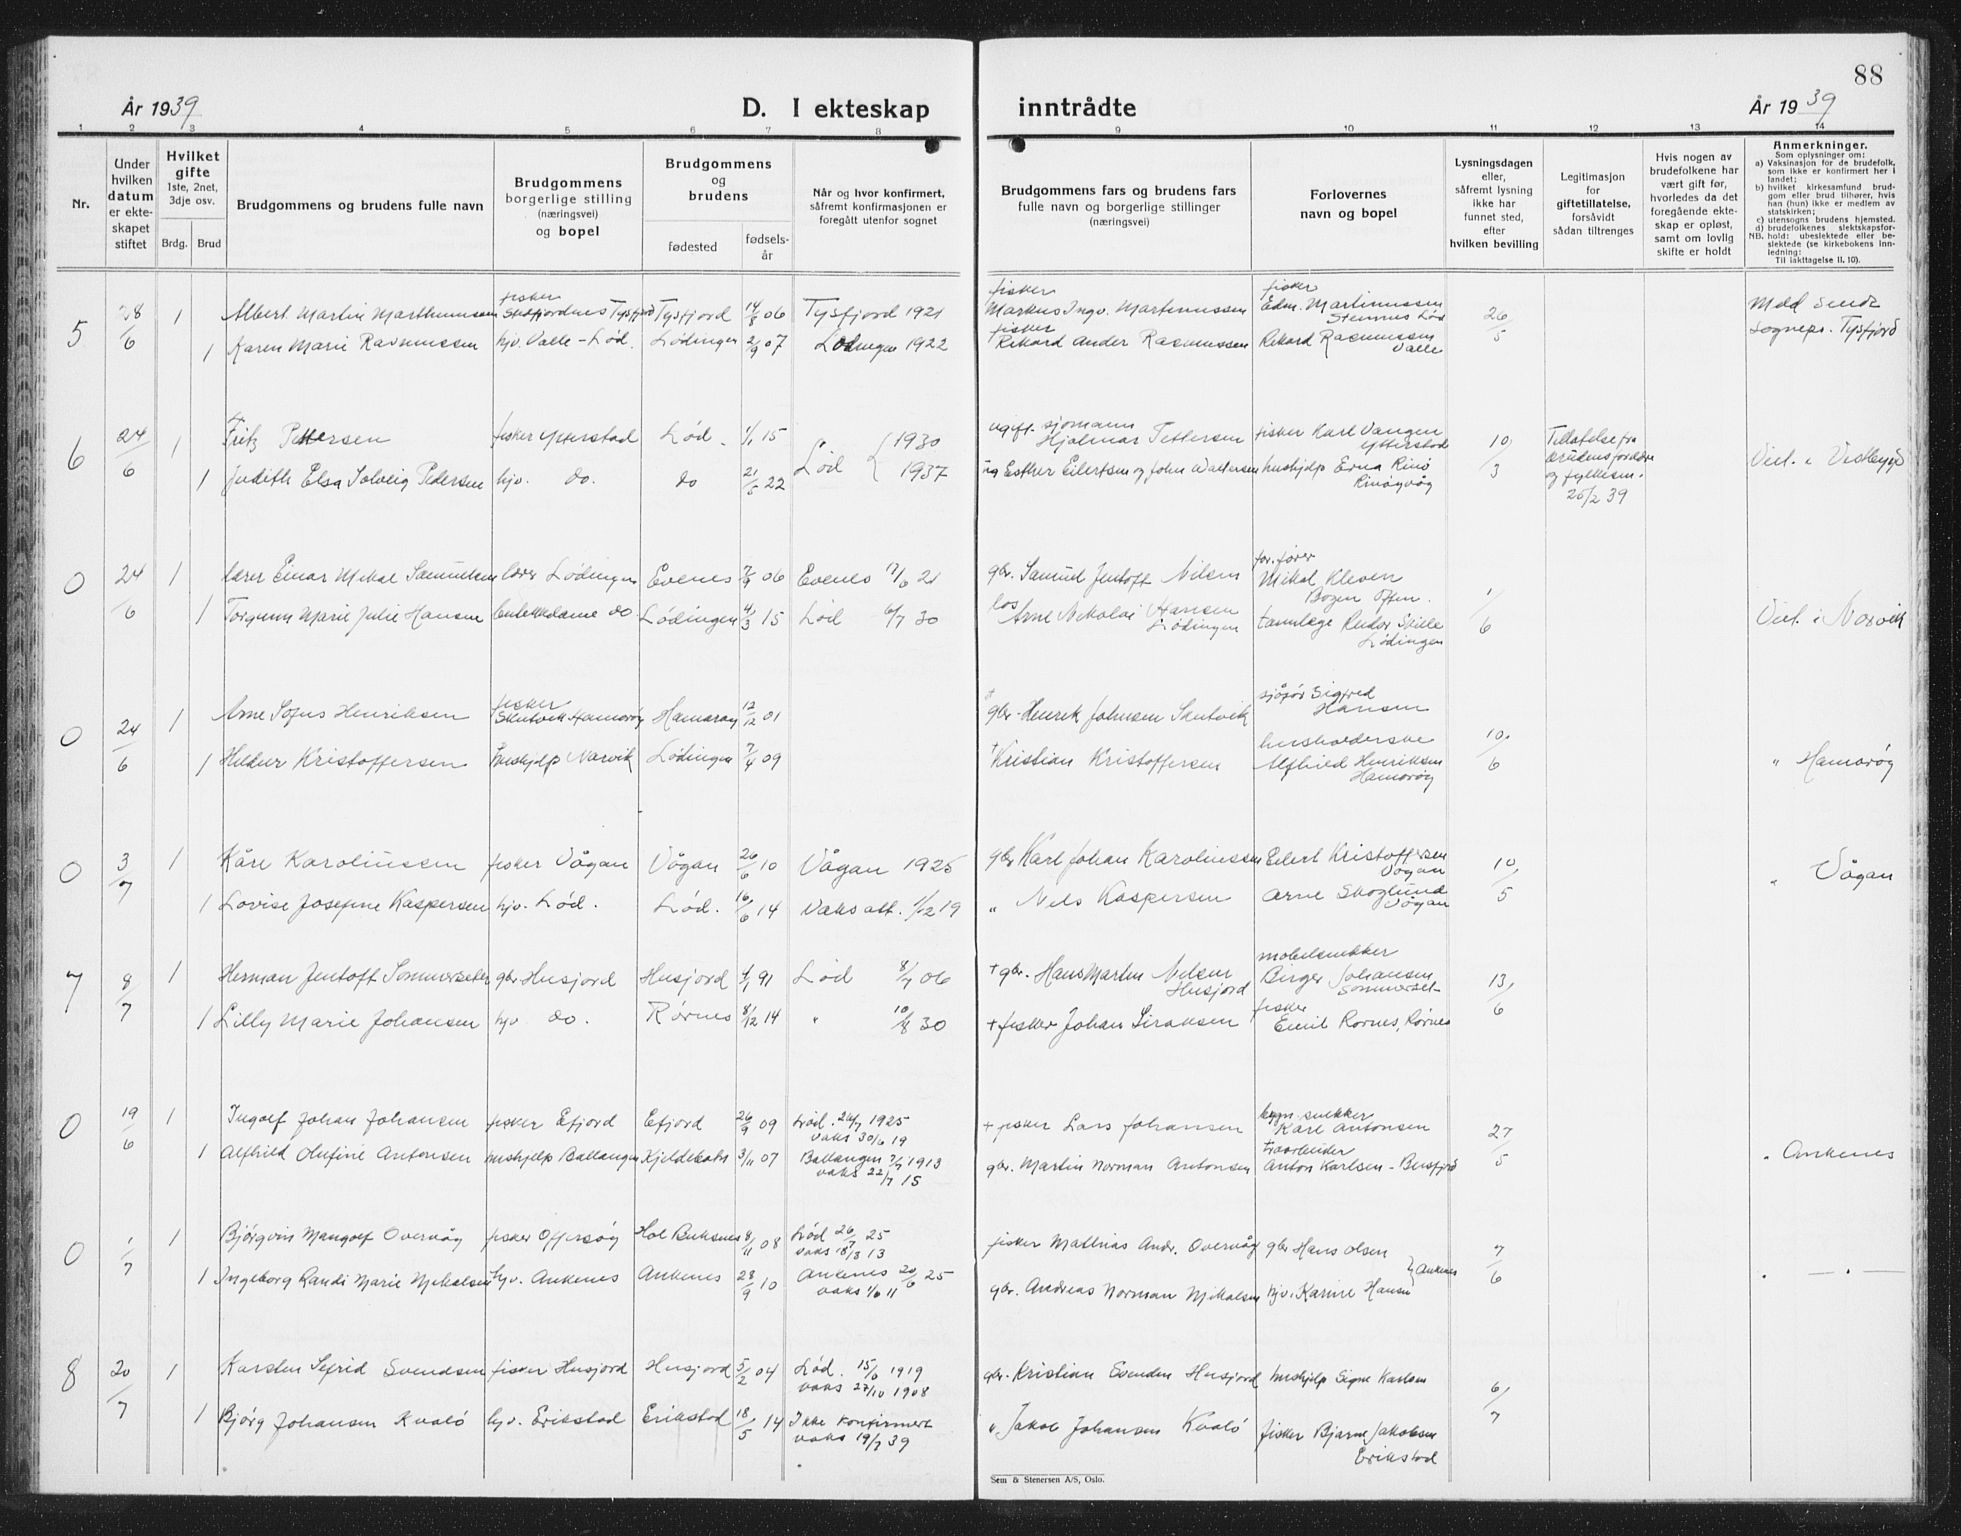 88
År 1939
D. I ekteskap inntrådte
År 1939
1 2 3 4 5 6 7 8 9 10 11 12 13 14
Nr.
Under hvilken datum er ekteskapet stiftet
Hvilket gifte
1ste, 2net, 3dje osv.
Brdg. Brud
Brudgommens og brudens fulle navn
Brudgommens borgerlige stilling (næringsvei) og bopel
Brudgommens og brudens
fødested
fødselsår
Når og hvor konfirmert, såfremt konfirmasjonen er foregått utenfor sognet
Brudgommens fars og brudens fars fulle navn og borgerlige stillinger (næringsvei)
Forlovernes navn og bopel
Lysningsdagen eller, såfremt lysning ikke har funnet sted, efter hvilken bevilling
Legitimasjon for giftetillatelse, forsåvidt sådan tiltrenges
Hvis nogen av brudefolkene har vært gift før, hvorledes da det foregående ekteskap er opløst, samt om lovlig skifte er holdt
Anmerkninger.
Som oplysninger om:
a) Vaksinasjon for de brudefolk, som ikke er konfirmert her i landet;
b) hvilket kirkesamfund brudgom eller brud tilhører, hvis han (hun) ikke er medlem av statskirken;
c) utensogns brudens hjemsted.
d) brudefolkenes slektskapsforhold: ubeslektede eller beslektede (se kirkebokens Innledning:
NB. Til iakttagelse II. 10).
5 28/6 1 Albert Martin Marthinussen fisker Tysfjord Tysfjord 14/8 06 Tysfjord 1921 fisker Markus Ingv. Martinussen fisker Edm. Martinussen Stennes Lød 26/5 Med sendt sognepr. Tysfjord
1 Karen Marie Rasmussen hjv. Valle - Lød. Lødingen 2/9 07 Lødingen 1922 fisker Rikard Ander Rasmussen Rikard Rasmussen Valle
6 24/6 1 Fritz Pettersen fisker Ytterstad Lød. 1/1 15 Lød { 1930 ugift sjømann Hjalmar Pettersen fisker Karl Vangen Ytterstad 10/3 Tillatelse fra brudens foreldre og fylkesm. 25/2 39 Viet i Vestbygd
1 Judith Elsa Solveig Pedersen hjv. do. do 21/5 22 1937 ug Esther Eilertsen og John Waltersen hushjelp Erna Rinø Rinøyvåg
0 24/6 1 lærer Einar Mikal Samuelsen lærer Lødingen Evenes 7/9 06 Evenes 17/6 21 gbr. Samuel Jentoft Nilsen for.fører Mikal Kleven Bogen Ofoten. 1/6 Viet i Narvik
1 Torgunn Marie Julie Hansen butikkdame do. Lødingen 4/3 15 Lød 6/7 30 los Arne Nikolai Hansen Lødingen tannlege Reidar Skille Lødingen
0 24/6 1 Arne Sofus Henriksen fisker Skutvik Hamarøy Hamarøy 12/12 01 + gbr. Henrik Johnsen Skutvik sjåfør Sigfred Hansen 10/6 " Hamarøy
1 Hildur Kristoffersen hushjelp Narvik Lødingen 7/4 09 + Kristian Kristoffersen husholderske Alfhild Henriksen Hamarøy
0 3/7 1 Kåre Karoliussen fisker Vågan Vågan 26/6 10 Vågan 1925 gbr Karl Johan Karoliussen Eilert Kristoffersen Vågan 10/5 " Vågan
1 Lovise Josefine Kaspersen hjv. Lød. Lød. 16/6 14 Vaks att. 1/12 19 " Nils Kaspersen Arne Skoglund Vågan
7 8/7 1 Herman Jentoft Sommerseter gbr Husjord Husjord 4/1 91 Lød 8/7 06 + gbr. Hans Martin Nilsen Husjord møbelsnekker Birger Johansen Sommerset 13/6
1 Lilly Marie Johansen hjv do. Rørnes 8/12 14 " 10/8 30 + fisker Johan Siraksen fisker Emil Rornes, Rørnes
0 19/6 1 Ingolf Johan Johansen fisker Efjord Efjord 26/9 09 Lød. 26/7 1925 vaks 30/6 19 + fisker Lars Johansen bygn. snekker Karl Antonsen 27/5 " Ankenes
1 Alfhild Olufine Antonsen hushjelp Ballangen Kjeldebotn 3/11 07 Ballangen 7/7 1913 vaks 22/7 15 gbr. Martin Norman Antonsen Anton Karlsen -
0 1/7 1 Bjørgvin Mangolf Overvåg fisker Offersøy Hol Buksnes 8/11 08 Lød 26/7 25 vaks 18/3 13 fisker Mathias Andr. Overvåg gbr Hans Olsen } Ankenes 7/6 " — " —
1 Ingeborg Randi Marie Mikalsen hjv. Ankenes Ankenes 28/9 10 Ankenes 20/6 25 vaks 1/6 11 gbr. Andreas Norman Mikalsen hjv. Karine Hansen
8 20/7 1 Karsten Sefrid Svendsen fisker Husjord Husjord 5/2 04 Lød. 15/6 1919 vaks 27/10 1908 gbr. Kristian Svendsen Husjord hushjelp Signe Karlsen 6/7
1 Bjørg Johansen Kvalø hjv. Erikstad Erikstad 18/5 14 Ikke konfirmert vaks 19/7 39 " Jakob Johansen Kvalø fisker Bjarne Jakobsen Erikstad
Sem & Stenersen A/S, Oslo.